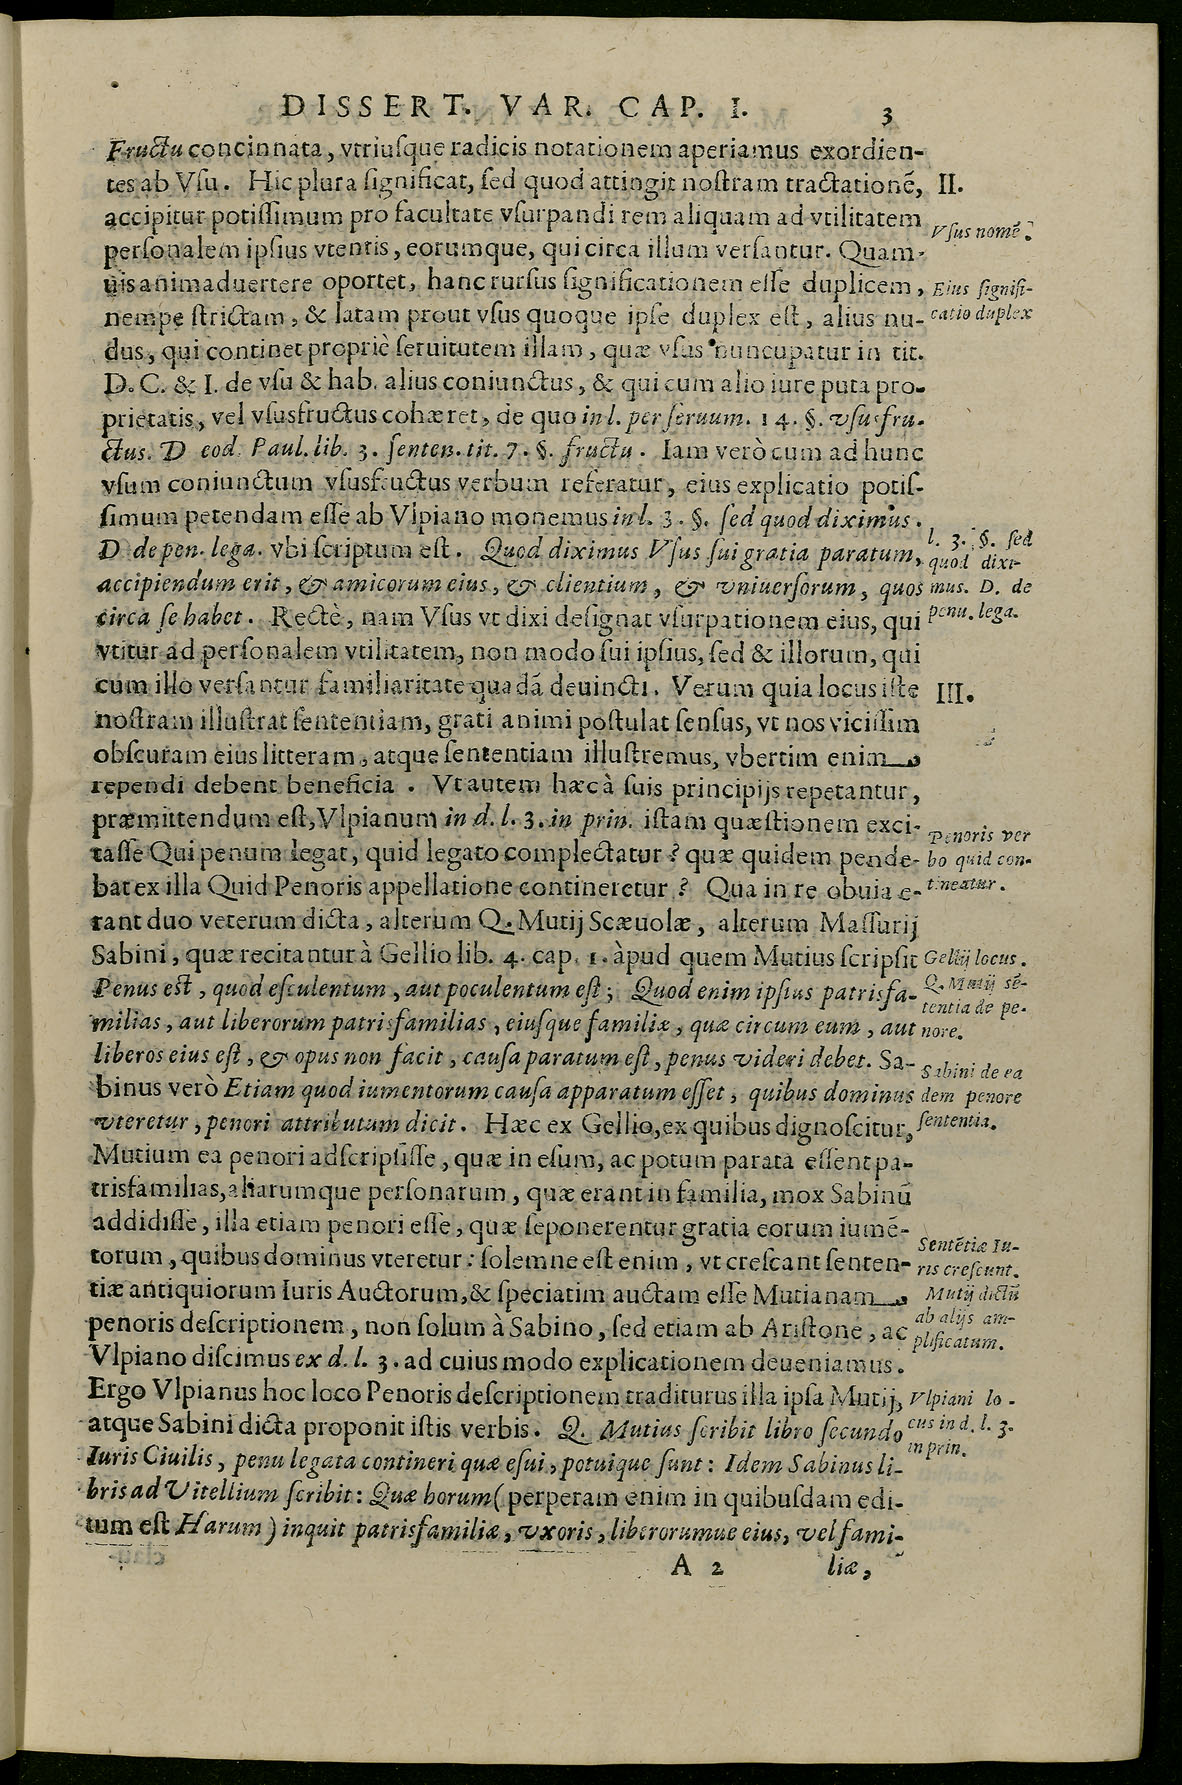 DISSERT. VAR. CAP. I. 3
Fructu concinnata, vtriusque radicis notationem aperiamus exordien-
tes ab Vsu. Hic plura significat, sed quod attingit nostram tractationẽ,
accipitur potissimum pro facultate vsurpandi rem aliquam ad vtilitatem
personalem ipsius vtentis, eorumque, qui circa illum versantur. Quam-
uis animaduertere oportet, hanc rursus significationem esse duplicem,
nempe strictam, & latam prout vsus quoque ipse duplex est, alius nu-
dus, qui continet propriè seruitutem illam, quæ vsus nuncupatur in tit.
D. C. & I. de vsu & hab. alius coniunctus, & qui cum alio iure puta pro-
prietatis, vel vsusfructus cohæret, de quo in l. per seruum. 14. §. vsusfru-
ctus. D eod. Paul. lib. 3. senten. tit. 7. §. fructu. Iam verò cum ad hunc
vsum coniunctum vsusfructus verbum referatur, eius explicatio potis-
simum petendam esse ab Vlpiano monemus in l. 3. §. sed quod diximus.
D de pen. lega. vbi scriptum est. Quod diximus Vsus sui gratia paratum,
accipiendum erit, & amicorum eius, & clientium, & vniuersorum, quos
circa se habet. Rectè, nam Vsus vt dixi designat vsurpationem eius, qui
vtitur ad personalem vtilitatem, non modo sui ipsius, sed & illorum, qui
cum illo versantur familiaritate quadã deuincti. Verum quia locus iste
nostram illustrat sententiam, grati animi postulat sensus, vt nos vicissim
obscuram eius litteram, atque sententiam illustremus, vbertim enim
rependi debent beneficia. Vt autem hæc à suis principijs repetantur,
præmittendum est, Vlpianum in d. l. 3. in prin. istam quæstionem exci-
tasse Qui penum legat, quid legato complectatur? quæ quidem pende-
bat ex illa Quid Penoris appellatione contineretur? Qua in re obuia e-
rant duo veterum dicta, alterum Q. Mutij Scæuolæ, alterum Massurij
Sabini, quæ recitantur à Gellio lib. 4. cap. 1. àpud quem Mutius scripsit
Penus est, quod esculentum, aut poculentum est; Quod enim ipsius patrisfa-
milias, aut liberorum patrisfamilias, eiusque familiæ, quæ circum eum, aut
liberos eius est, & opus non facit, causa paratum est, penus videri debet. Sa-
binus verò Etiam quod iumentorum causa apparatum esset, quibus dominus
vteretur, penori attributum dicit. Hæc ex Gellio, ex quibus dignoscitur,
Mutium ea penori adscripsisse, quæ in esum, ac potum parata essent pa-
trisfamilias, aliarumque personarum, quæ erant in familia, mox Sabinũ
addidisse, illa etiam penori esse, quæ seponerentur gratia eorum iumẽ-
torum, quibus dominus vteretur: solemne est enim, vt crescant senten-
tiæ antiquiorum Iuris Auctorum, & speciatim auctam esse Mutianam
penoris descriptionem, non solum à Sabino, sed etiam ab Aristone, ac
Vlpiano discimus ex d. l. 3. ad cuius modo explicationem deueniamus.
Ergo Vlpianus hoc loco Penoris descriptionem traditurus illa ipsa Mutij,
atque Sabini dicta proponit istis verbis. Q. Mutius scribit libro secundo
Iuris Ciuilis, penu legata contineri quæ esui, potuique sunt: Idem Sabinus li-
bris ad Vitellium scribit: Quæ horum (perperam enim in quibusdam edi-
tum est Harum) inquit patrisfamiliæ, vxoris, liberorumue eius, vel fami-
A 2 liæ,
II.
Vsus nomẽ.
Eius signifi-
catio duplex
l. 3. §. sed
quod dixi-
mus. D. de
penu. lega.
III.
Penoris ver
bo quid con-
tineatur.
Gellij locus.
Q. Mutij sẽ-
tentia de pe-
nore.
Sabini de ea
dem penore
sententia.
Sentẽtiæ Iu-
ris crescunt.
Mutij dictũ
ab alijs am-
plificatum.
Vlpiani lo-
cus in d. l. 3.
in prin.